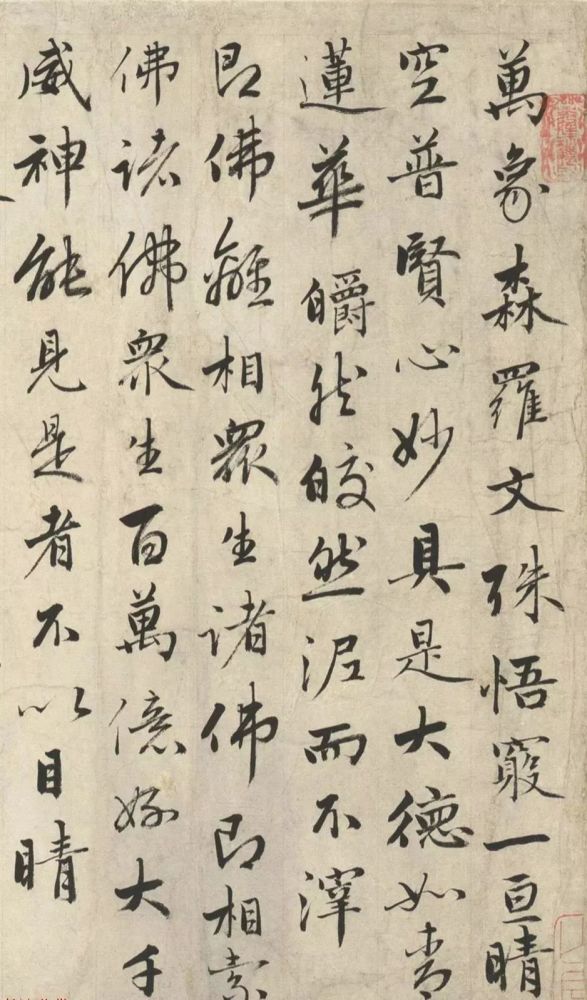 萬象森羅文殊悟一亘晴
空普賢心妙具是大德如青
蓮華皭然皎然泥而不滓
即佛離相衆生諸佛即相索
佛諸佛衆生百萬億大千
威神能見是者不以目睛